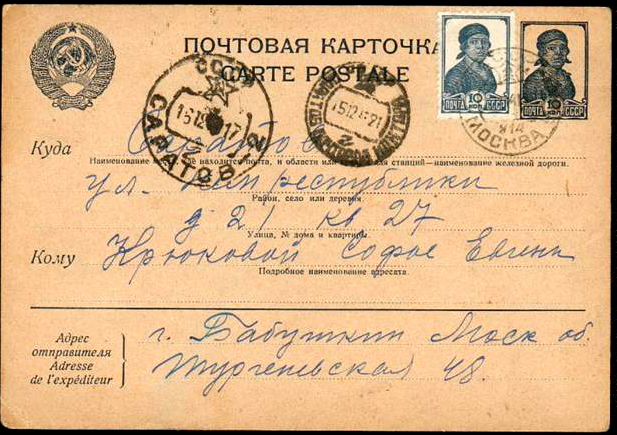 ПОЧТОВАЯ КАРТОЧКА
CARTE POSTALE
10 КОП.
ПОЧТА СССР
10 КОП.
ПОЧТА СССР
СССР
15 12 17
САРАТОВ 2
15 12 21
2
МОСКВА
914
Куда
Саратов
Наименование места, где находится почта, и области или края, а для станций—наименование железной дороги.
ул. Нем республики
Район, село или деревня.
д 21 кв 27
Улица, № дома и квартиры.
Кому
Крюковой Софье Евгень
Подробное наименование адресата.
Адрес
отправителя
Adresse
de l'expéditeur
г. Бабушкин Моск об.
Тургеневская 48.